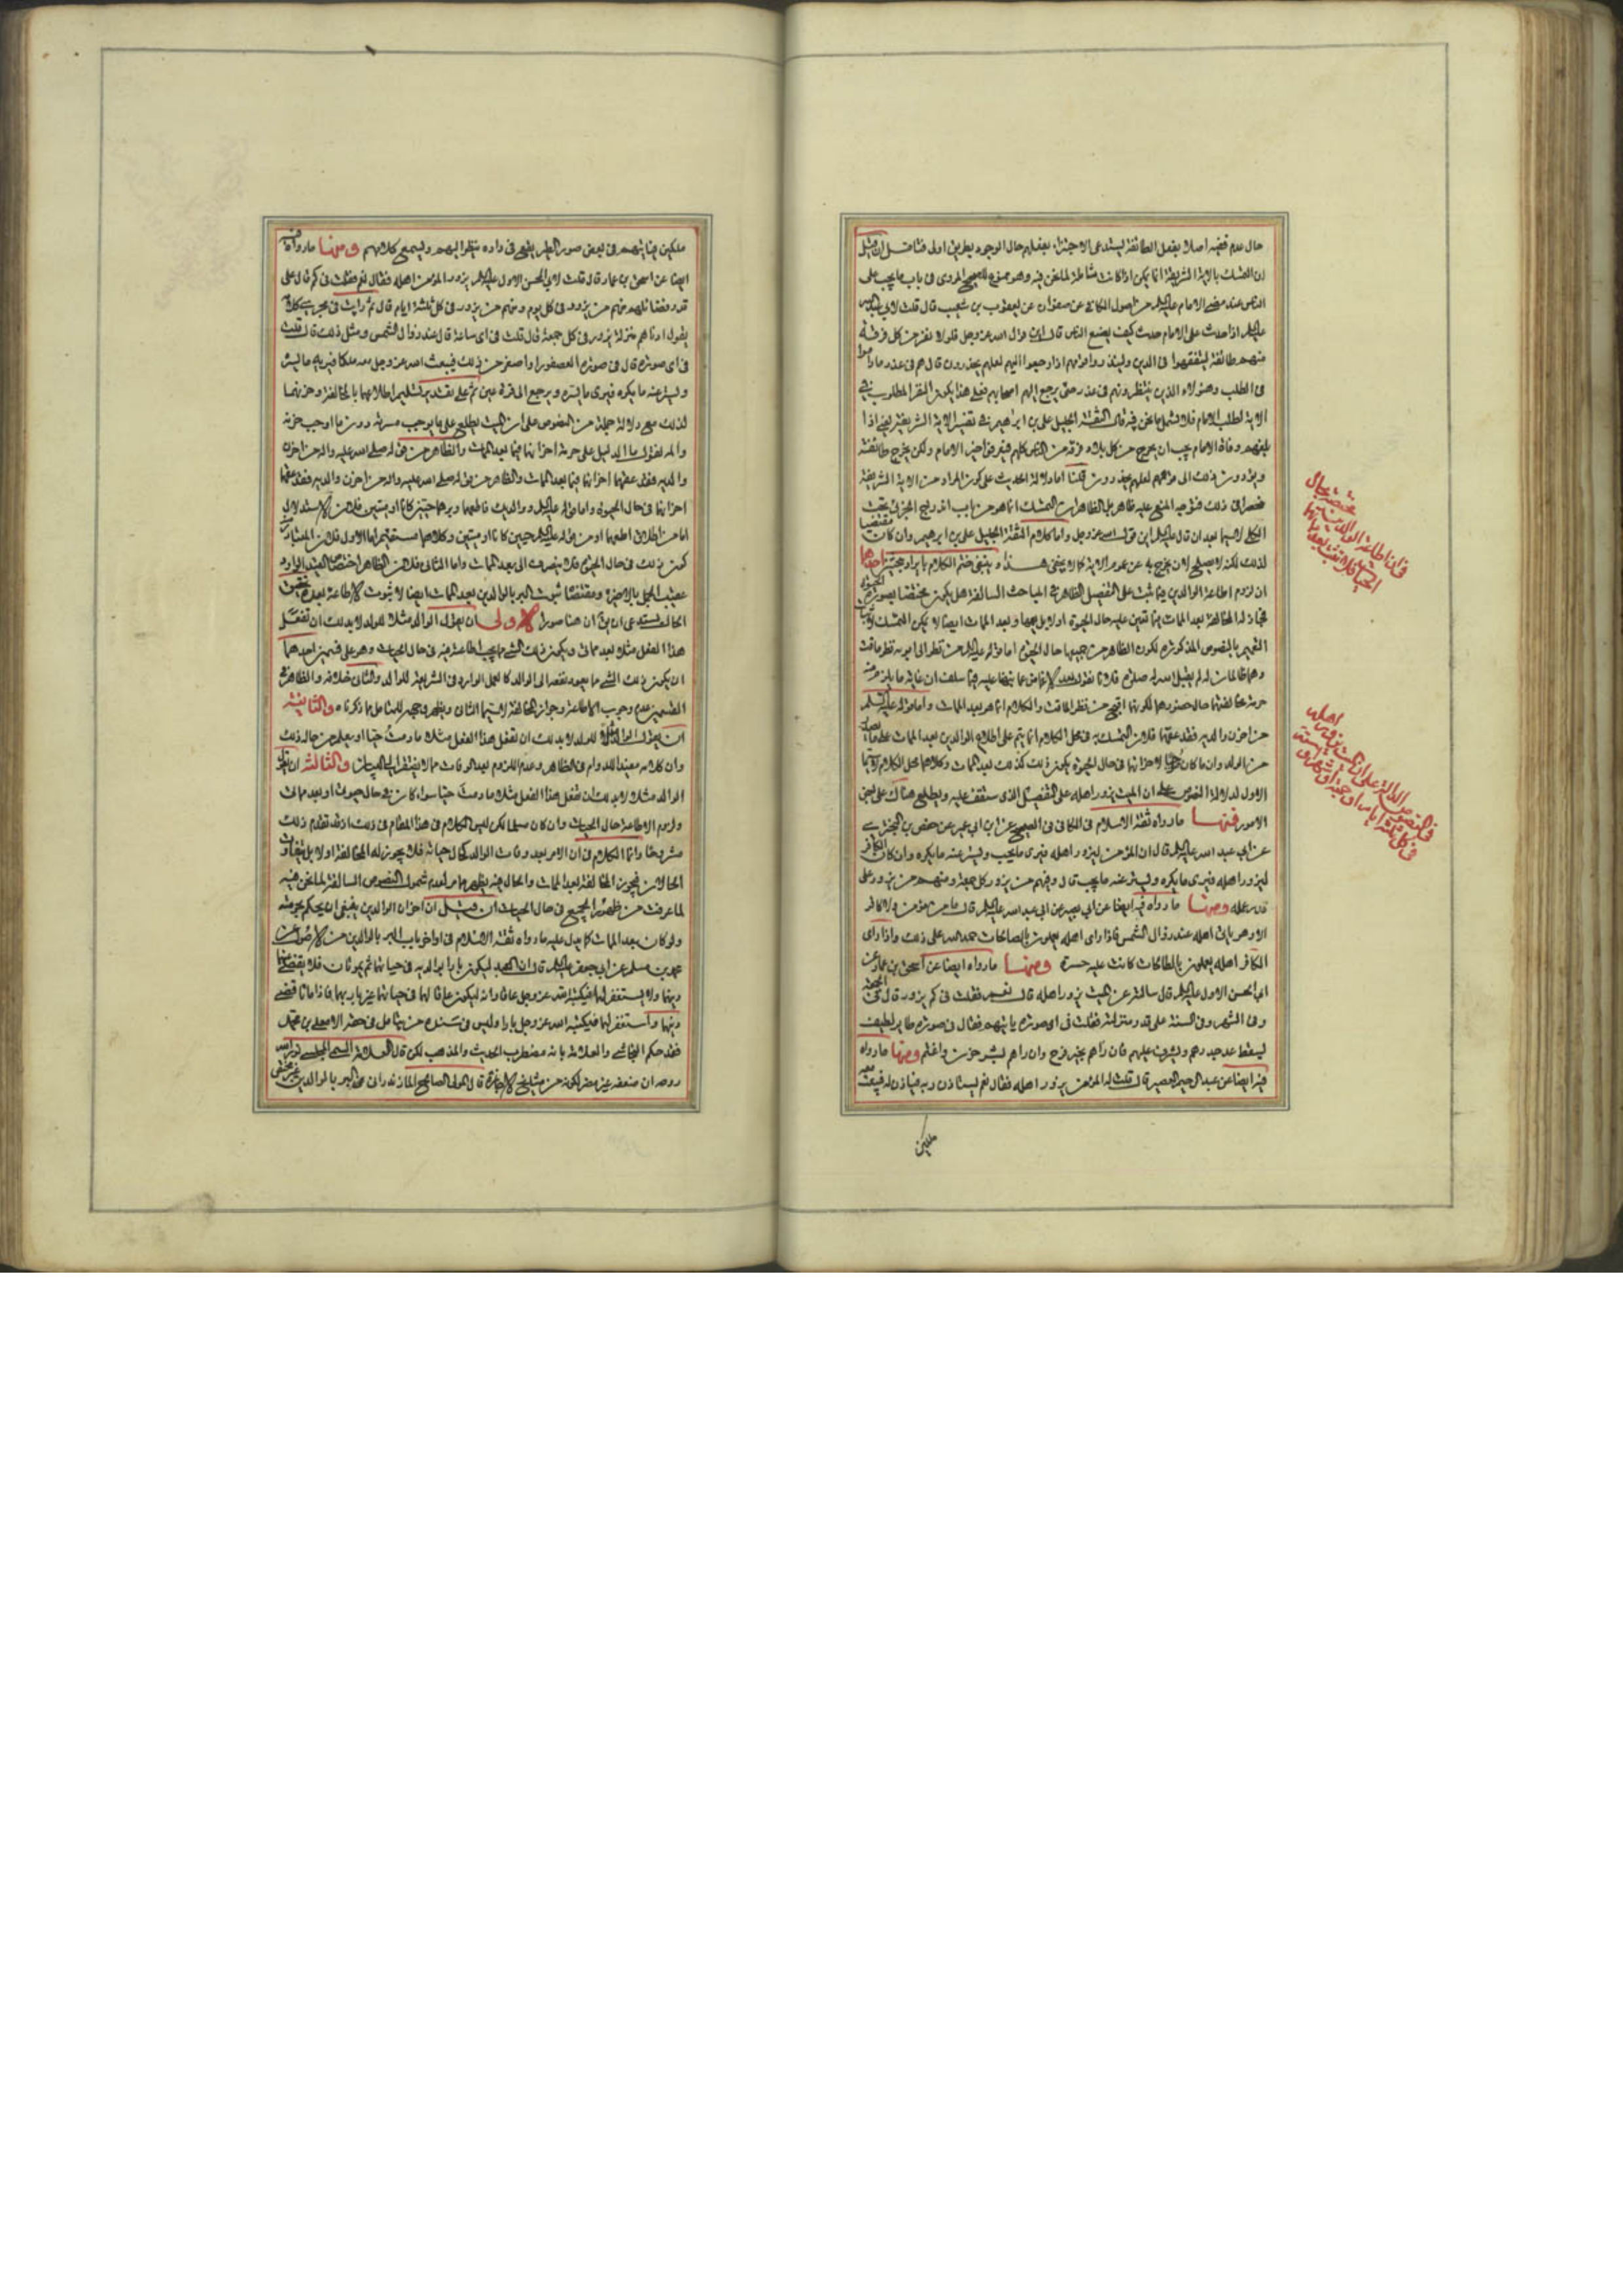 حال عدم قصد اصلا بفعل الطائفة ليستدعى الاجتزاء بفعلهم حال الوجود بطريق اولى فتامل ان قيل
ان التمسك بالاية الشريفة انما يمكن اذا كانت شاملة لما نحن فيه وهو ممنوع للصحيح المروى فى باب ما يجب على
الناس عند مضى الامام عليه السلم من اصول الكافى عن صفوان عن يعقوب بن شعيب قال قلت لابي عبد الله
عليه السلم اذا حدث على الامام حدث كيف يصنع الناس قال اين قول الله عز وجل فلولا نفر من كل فرقة
منهم طائفة ليتفقهوا فى الدين ولينذروا قومهم اذا رجعوا اليهم لعلهم يحذرون قال هم فى عذر ما داموا
فى الطلب وهؤلاء الذين ينتظرونهم فى عذر حتى يرجع اليهم اصحابهم فعلى هذا يكون النفر المطلوب فى
الاية لطلب الامام فلا تشمل ما نحن فيه قال الثقة الجليل على بن ابراهيم فى تفسير الاية الشريفة يعنى اذا
بلغهم وفاة الامام يجب ان يخرج من كل بلاد فرقة من الناس كلهم فينفروا الامام ولكن يخرج طائفة
ويؤدون ذلك الى قومهم لعلهم يحذرون قلنا اما دلالة الحديث على كون المراد من الاية الشريفة
منحصرا فى ذلك فتوجه المنع عليه ظاهر بل الظاهر ان التمسك انما هو من باب اندراج الجزئى تحت
الكلى لا سيما بعد ان قال عليه السلم اين قول الله عز وجل واما كلام الثقة الجليل على بن ابرهيم وان كان مقتضيا
لذلك لكنه لا يصلح لان يخرج به عن عموم الاية كما لا يخفى هذا وينبغى ختم الكلام بايراد مبحثين احدهما
ان لزوم اطاعة الوالدين فيما ثبت على التفصيل الظاهر فى المباحث السالفة هل يكون مختصا بصورة الحيوة
فيجاز له المخالفة بعد الممات فيما تعين عليه حال الحيوة او لا بل يعمها وبعد الممات ايضا لا يمكن التمسك لاثبات
التعميم بالنصوص المذكورة لكون الظاهر من جميعها حال الحيوة اما قوله عليه السلم من نظر الى ابويه نظر ماقت
وهما ظالمان له لم يقبل الله له صلوة فلانا نقول بعد الاغماض عما نبهنا عليه فيما سلف ان غاية ما يلزم منه
حرمة مخالفتهما حال حضورهما لكونها اقبح من نظر الماقت والكلام انما هو بعد الممات واما قوله عليه السلم
من احزن والديه فقد عقهما فلان التمسك به فى محل الكلام انما يتم على اطلاع الوالدين بعد الممات على ما يصدر
من الولد وان ما كان موجبا لاحزانهما فى حال الحيوة يكون ذلك كذلك بعد الممات وكلاهما محل الكلام لا سيما
الاول لدلالة النصوص على ان الميت يزور اهله على التفصيل الذى ستقف عليه ويطلع هناك على بعض
الامور فمنها ما رواه ثقة الاسلام فى الكافى فى الصحيح عن ابن ابي عمير عن حفص بن البخترى
عن ابي عبد الله عليه السلم قال ان المؤمن ليزور اهله فيرى ما يحب ويستر عنه ما يكره وان الكافر
ليزور اهله فيرى ما يكره ويستر عنه ما يحب قال وفيهم من يزور كل جمعة ومنهم من يزور على
قدر عمله ومنها ما رواه فيه ايضا عن ابي بصير عن ابي عبد الله عليه السلم قال ما من مؤمن ولا كافر
الا وهو ياتى اهله عند زوال الشمس فاذا راى اهله يعملون بالصالحات حمد الله على ذلك واذا راى
الكافر اهله يعملون بالصالحات كانت عليه حسرة ومنها ما رواه ايضا عن اسحق بن عمار عن
ابي الحسن الاول عليه السلم قال سالته عن الميت يزور اهله قال نعم فقلت فى كم يزور قال فى الجمعة
وفى الشهر وفى السنة على قدر منزلته فقلت فى اى صورة ياتيهم فقال فى صورة طاير لطيف
ليسقط على جدرهم ويشرف عليهم فان راهم بخير فرح وان راهم بشر حزن واغتم ومنها ما رواه
فيه ايضا عن عبد الرحيم القصير قال قلت له المؤمن يزور اهله فقال نعم يستاذن ربه فياذن له فيبعث معه
ملكين
فى ان اطاعة الوالدين مختصة بحال
فى النصوص الدالة على ان الميت يزور اهله
ملكين فياتيهم فى بعض صور الطير يقع فى داره ينظر اليهم ويسمع كلامهم ومنها ما رواه فيه
ايضا عن اسحق بن عمار قال قلت لابي الحسن الاول عليه السلم يزور المؤمن اهله فقال نعم فقلت فى كم قال على
قدر فضائلهم منهم من يزور فى كل يوم ومنهم من يزور فى كل ثلثة ايام قال ثم رايت فى مجرى كلامه
يقول ادناهم منزلة يزور فى كل جمعة قال قلت فى اى ساعة قال عند زوال الشمس ومثل ذلك قال قلت
فى اى صورة قال فى صورة العصفور او اصغر من ذلك فيبعث الله عز وجل معه ملكا فيريه ما يسره
ويستر عنه ما يكره فيرى ما يسره ويرجع الى قرة عين ثم على تقدير تسليم اطلاعهما بالمخالفة وحزنهما
لذلك مع دلالة جملة من النصوص على ان الميت يطلع على ما يوجب مسرته دون ما اوجب حزنه
والمه نقول ما الدليل على حرمة احزانهما فيما بعد الممات والظاهر من قوله صلى الله عليه واله من احزن
والديه فقد عقهما احزانهما فيما بعد الممات والظاهر من قوله صلى الله عليه واله من احزن والديه فقد عقهما
احزانهما فى حال الحيوة واما قوله عليه السلم ووالديك فاطعهما وبرهما حيين كانا او ميتين فلان الاستدلال به
اما من اطلاق اطعهما او من قوله عليه السلم حيين كانا او ميتين وكلاهما مستقيم اما الاول فلان المتبادر منه
كون ذلك فى حال الحيوة فلا ينصرف الى بعد الممات واما الثانى فلان الظاهر اختصاص القيد الوارد
عقيب الجمل بالاخيرة ومقتضاها ثبوت البر بالوالدين بعد الممات ايضا لا ثبوت الاطاعة بعده تحقيق
الحال يستدعى ان يق ان هنا صورا الاولى ان يقول الوالد مثلا للولد لا بد لك ان تفعل
هذا الفعل مثلا بعد مماتى ويكون ذلك الشئ مما يجب اطاعته فيه فى حال الحيات وهو على قسمين احدهما
ان يكون ذلك الشئ ما يعود نفعه الى الوالد كالعمل الوارد فى الشريعة للوالد والثانى خلافه والظاهر فى
القسمين عدم وجوب الاطاعة وجواز المخالفة لا سيما الثانى ويظهر وجهه للمتامل مما ذكرناه والثانية
ان يقول الوالد مثلا للولد لا بد لك ان تفعل هذا الفعل مثلا ما دمت حيا او يعلم من حاله ذلك
وان كلامه مفيد للدوام فى الظاهر وعدم اللزوم بعد الوفات مما لا يفتقر الى البيان والثالثة ان يقول
الوالد مثلا لا بد لك ان تفعل هذا الفعل مثلا ما دمت حيا سواء كان فى حال حيوتى او بعد مماتى
ولزوم الاطاعة حال الحيات وان كان مسلما لكن ليس الكلام فى هذا المقام فى ذلك اذ قد تقدم ذلك
مشروحا وانما الكلام فى ان الامر بعد وفات الوالد كحال حياته فلا يجوز له المخالفة او لا بل يتفاوت
الحالان فيجوز المخالفة بعد الممات والحال فيه يظهر مما مر لعدم شمول النصوص السالفة لما نحن فيه
لما عرفت من ظهور الجميع فى حال الحيات ان قيل ان احزان الوالدين ينبغى ان يحكم بحرمته
ولو كان بعد الممات كما يدل عليه ما رواه ثقة الاسلام فى اواخر باب البر بالوالدين من الاصول عن
محمد بن مسلم عن ابي جعفر عليه السلم قال ان العبد ليكون بارا بوالديه فى حياتهما ثم يموتان فلا يقضى عنهما
دينهما ولا يستغفر لهما فيكتبه الله عز وجل عاقا وانه ليكون عاقا لهما فى حياتهما غير بار بهما فاذا ماتا قضى
دينهما واستغفر لهما فيكتبه الله عز وجل بارا وليس فى سنده من يتامل فى حقه الا معلى بن محمد
فقد حكم النجاشى والعلامة بانه مضطرب الحديث والمذهب لكن قال العلامة السمى المجلسى نور الله
روحه ان ضعفه غير مضر لكونه من مشايخ الاجازة قال المولى الصالح المازندرانى هذا البر بالوالدين غير مختص